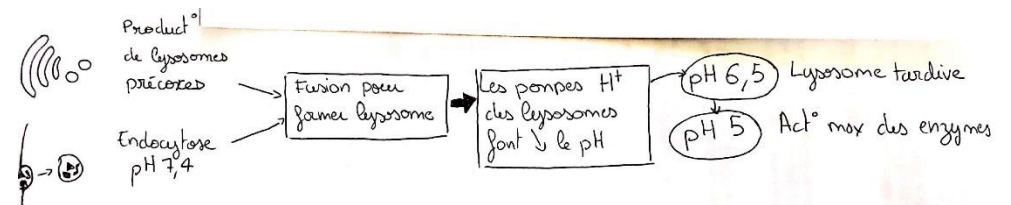 Product°
de lysosomes
précoces
Endocytose
pH 7,4
Fusion pour
former lysosome
Les pompes H+
des lysosomes
font ↘ le pH
pH 6,5 Lysosome tardive
pH 5 Act° max des enzymes